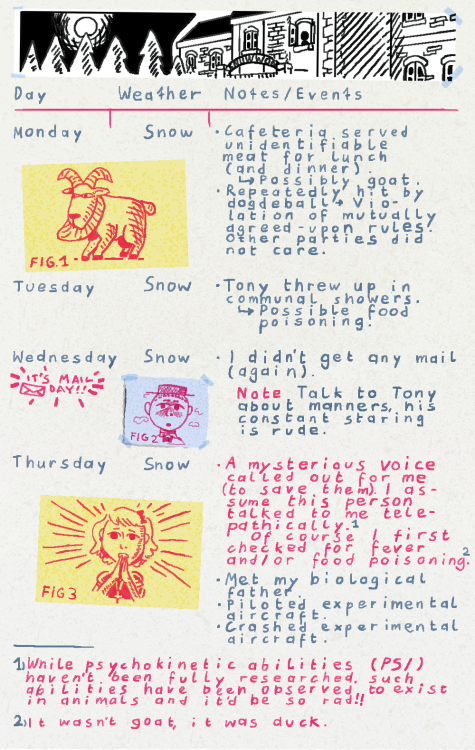 Day Weather Notes/Events
Monday Snow
• Cafeteria served
unidentifiable
meat for lunch
(and dinner).
↳ Possibly goat.
• Repeatedly hit by
dogdeball → Vio-
lation of mutually
agreed-upon rules.
Other parties did
not care.
FIG.1
Tuesday Snow
• Tony threw up in
communal showers.
↳ Possible food
poisoning.
Wednesday Snow
IT'S MAIL
DAY!!
FIG 2
• I didn't get any mail
(again).
Note Talk to Tony
about manners, his
constant staring
is rude.
Thursday Snow
FIG 3
• A mysterious voice
called out for me
(to save them). I as-
sume this person
talked to me tele-
pathically.1
Of course I first
checked for fever
and/or food poisoning.2
• Met my biological
father.
• Piloted experimental
aircraft.
• Crashed experimental
aircraft.
1) While psychokinetic abilities (PSI)
haven't been fully researched, such
abilities have been observed to exist
in animals and it'd be so rad!!
2) It wasn't goat, it was duck.